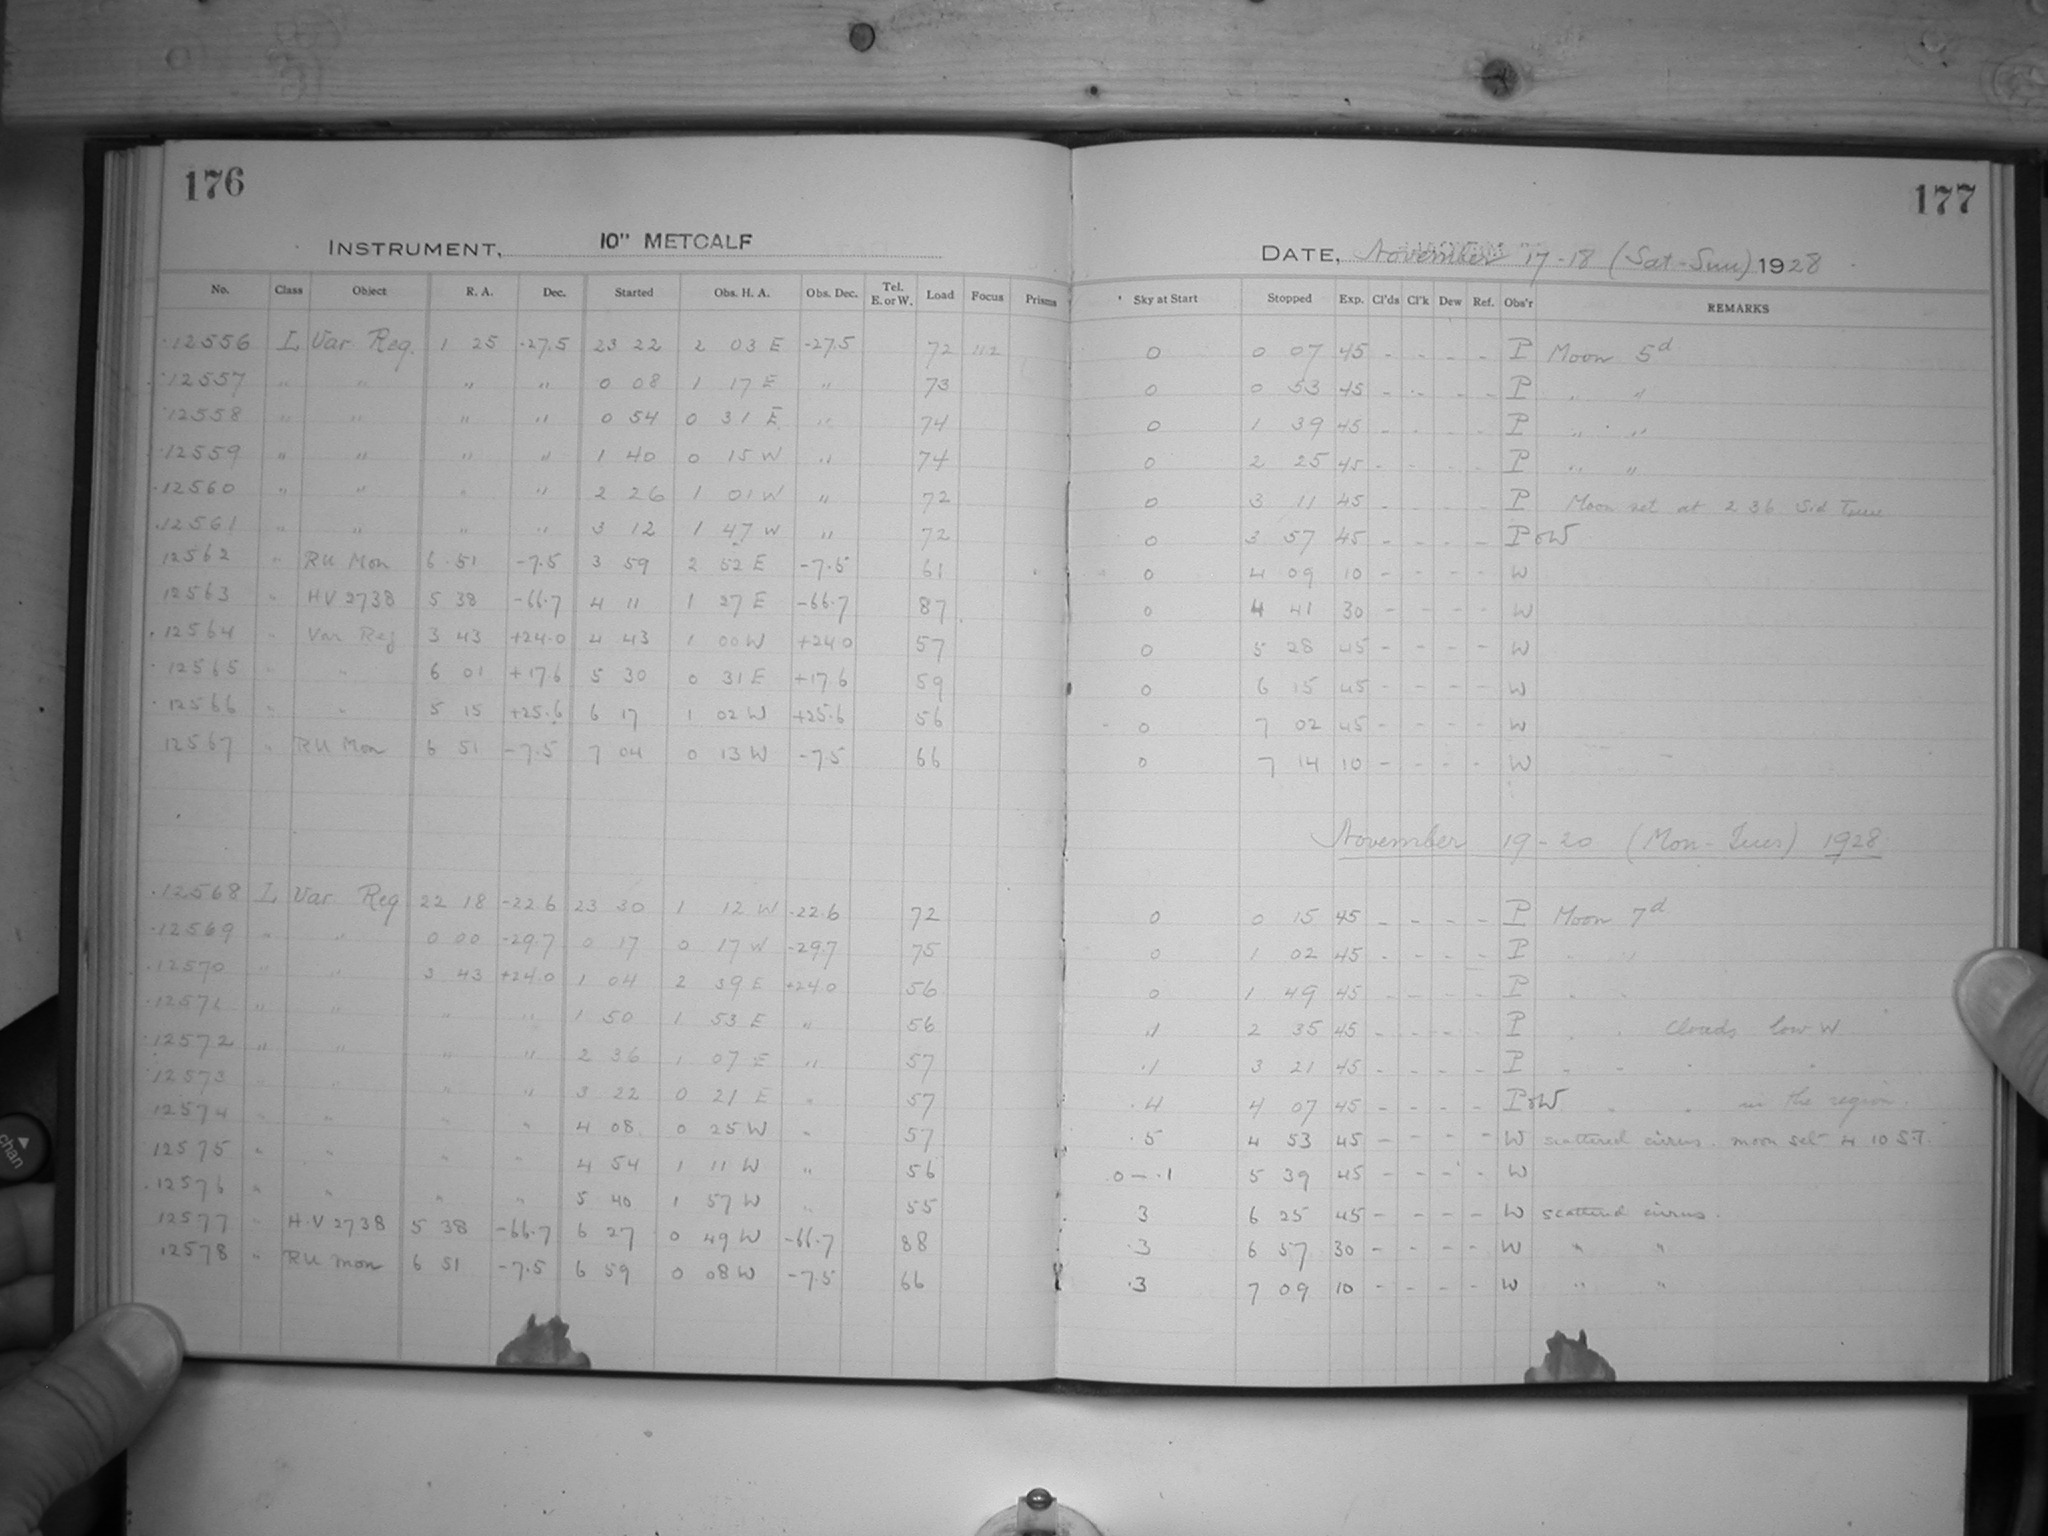 176
177
INSTRUMENT, 10" METCALF
DATE, November 17-18 (Sat-Sun) 1928
No. Class Object R. A. Dec. Started Obs. H. A. Obs. Dec. Tel. E. or W. Load Focus Prisms Sky at Start Stopped Exp. Cl'ds Cl'k Dew Ref. Obs'r REMARKS
12556 L Var Reg. 1 25 -27.5 23 22 2 03 E -27.5 72 112 0 0 07 45 - - - - P Moon 5d
12557 " " " " 0 08 1 17 E " 73 0 0 53 45 - - - - P " "
12558 " " " " 0 54 0 31 E " 74 0 1 39 45 - - - - P " "
12559 " " " " 1 40 0 15 W " 74 0 2 25 45 - - - - P " "
12560 " " " " 2 26 1 01 W " 72 0 3 11 45 - - - - P Moon set at 2 36 Sid Time
12561 " " " " 3 12 1 47 W " 72 0 3 57 45 - - - - P & W
12562 " RU Mon 6 51 -7.5 3 59 2 52 E -7.5 61 0 4 09 10 - - - - W
12563 " HV 2738 5 38 -66.7 4 11 1 27 E -66.7 87 0 4 41 30 - - - - W
12564 " Var Reg 3 43 +24.0 4 43 1 00 W +24.0 57 0 5 28 45 - - - - W
12565 " " 6 01 +17.6 5 30 0 31 E +17.6 59 0 6 15 45 - - - - W
12566 " " 5 15 +25.6 6 17 1 02 W +25.6 56 0 7 02 45 - - - - W
12567 " RU Mon 6 51 -7.5 7 04 0 13 W -7.5 66 0 7 14 10 - - - - W
November 19-20 (Mon-Tues) 1928
12568 L Var Reg 22 18 -22.6 23 30 1 12 W -22.6 72 0 0 15 45 - - - - P Moon 7d
12569 " " 0 00 -29.7 0 17 0 17 W -29.7 75 0 1 02 45 - - - - P " "
12570 " " 3 43 +24.0 1 04 2 39 E +24.0 56 0 1 49 45 - - - - P " "
12571 " " " " 1 50 1 53 E " 56 .1 2 35 45 - - - - P " " Clouds low W
12572 " " " " 2 36 1 07 E " 57 .1 3 21 45 - - - - P " " " "
12573 " " " " 3 22 0 21 E " 57 .4 4 07 45 - - - - P & W " " in the region.
12574 " " " " 4 08 0 25 W " 57 .5 4 53 45 - - - - W scattered cirrus. moon set 4 10 S.T.
12575 " " " " 4 54 1 11 W " 56 0-.1 5 39 45 - - - - W
12576 " " " " 5 40 1 57 W " 55 3 6 25 45 - - - - W scattered cirrus.
12577 " H.V 2738 5 38 -66.7 6 27 0 49 W -66.7 88 .3 6 57 30 - - - - W " "
12578 " RU Mon 6 51 -7.5 6 59 0 08 W -7.5 66 .3 7 09 10 - - - - W " "
chan